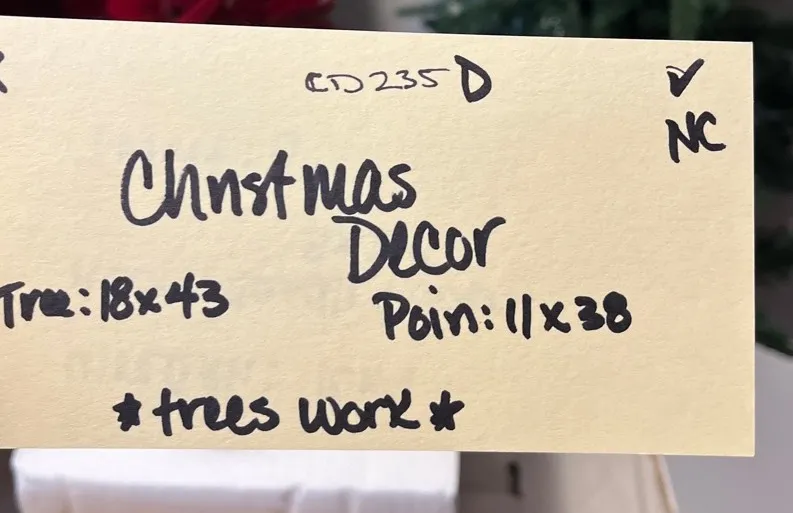 CD235D ✓
NC
Christmas
Decor
Tree: 18x43 Poin: 11x38
*trees work*